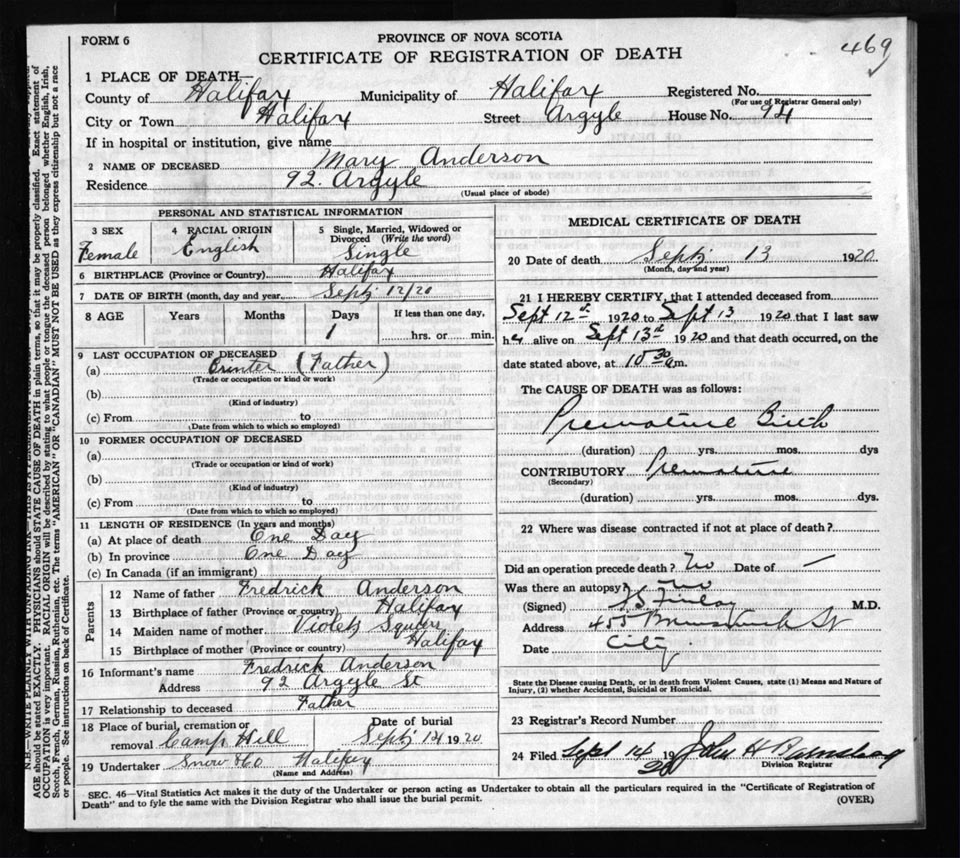 FORM 6
PROVINCE OF NOVA SCOTIA
CERTIFICATE OF REGISTRATION OF DEATH
469
1 PLACE OF DEATH—
County of Halifax Municipality of Halifax Registered No.
(For use of Registrar General only)
City or Town Halifax Street Argyle House No. 94
If in hospital or institution, give name
2 NAME OF DECEASED Mary Anderson
Residence 92. Argyle
(Usual place of abode)
PERSONAL AND STATISTICAL INFORMATION
3 SEX 4 RACIAL ORIGIN 5 Single, Married, Widowed or Divorced (Write the word)
Female English Single
6 BIRTHPLACE (Province or Country) Halifax
7 DATE OF BIRTH (month, day and year) Sept 12/20
8 AGE Years Months Days If less than one day,
1 hrs. or min.
9 LAST OCCUPATION OF DECEASED
(a) Printer (Father)
(Trade or occupation or kind of work)
(b)
(Kind of industry)
(c) From to
(Date from which to which so employed)
10 FORMER OCCUPATION OF DECEASED
(a)
(Trade or occupation or kind of work)
(b)
(Kind of industry)
(c) From to
(Date from which to which so employed)
11 LENGTH OF RESIDENCE (In years and months)
(a) At place of death One Day
(b) In province One Day
(c) In Canada (if an immigrant)
Parents
12 Name of father Fredrick Anderson
13 Birthplace of father (Province or country) Halifax
14 Maiden name of mother Violet Squire
15 Birthplace of mother (Province or country) Halifax
16 Informant's name Fredrick Anderson
Address 92 Argyle St
17 Relationship to deceased Father
18 Place of burial, cremation or removal Camp Hill Date of burial Sept 14 1920
19 Undertaker Snow & Co Halifax
(Name and Address)
MEDICAL CERTIFICATE OF DEATH
20 Date of death Sept 13 1920
(Month, day and year)
21 I HEREBY CERTIFY, that I attended deceased from
Sept 12th 1920 to Sept 13 1920 that I last saw
her alive on Sept 13th 1920 and that death occurred, on the
date stated above, at 10 30 a.m.
The CAUSE OF DEATH was as follows:
Premature Birth
(duration) yrs. mos. dys
CONTRIBUTORY Premature
(Secondary)
(duration) yrs. mos. dys.
22 Where was disease contracted if not at place of death?
Did an operation precede death? No Date of —
Was there an autopsy? No
(Signed) Finlay M.D.
Address 455 Brunswick St
Date City
State the Disease causing Death, or in death from Violent Causes, state (1) Means and Nature of
Injury, (2) whether Accidental, Suicidal or Homicidal.
23 Registrar's Record Number
24 Filed Sept 14 1920 John H
Division Registrar
SEC. 46—Vital Statistics Act makes it the duty of the Undertaker or person acting as Undertaker to obtain all the particulars required in the "Certificate of Registration of
Death" and to fyle the same with the Division Registrar who shall issue the burial permit.
(OVER)
N.B.—WRITE PLAINLY WITH UNFADING INK—THIS IS A
AGE should be stated EXACTLY. PHYSICIANS should STATE CAUSE OF DEATH in plain terms, so that it may be properly classified. Exact statement of
OCCUPATION is very important. RACIAL ORIGIN will be described by stating to what people or tongue the deceased person belonged, whether English, Irish,
Scotch, French, German, Russian, Ruthenian, etc. The terms "AMERICAN" OR "CANADIAN" MUST NOT BE USED as they express citizenship but not a race
or people. See instructions on back of Certificate.